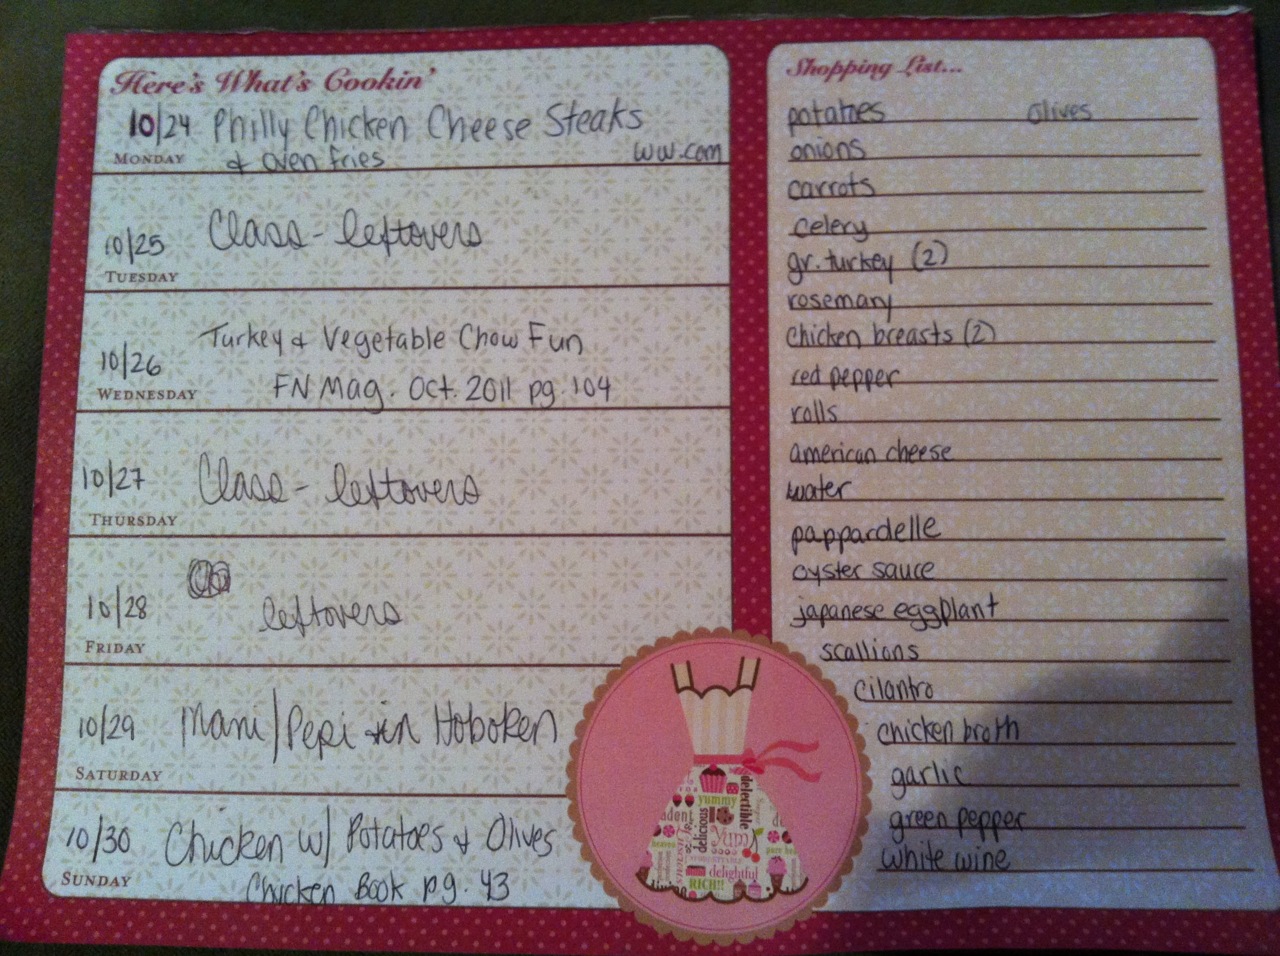 Here's What's Cookin'
10/24 Philly Chicken Cheese Steaks
MONDAY & oven fries ww.com
10/25 Class - leftovers
TUESDAY
Turkey & Vegetable Chow Fun
10/26
WEDNESDAY FN Mag. Oct. 2011 pg. 104
10/27 Class - leftovers
THURSDAY
10/28 leftovers
FRIDAY
10/29 Mani/Pepi in Hoboken
SATURDAY
10/30 Chicken w/ Potatoes & Olives
SUNDAY Chicken Book pg. 43
Shopping List...
potatoes olives
onions
carrots
celery
gr. turkey (2)
rosemary
chicken breasts (2)
red pepper
rolls
american cheese
water
pappardelle
oyster sauce
japanese eggplant
scallions
cilantro
chicken broth
garlic
green pepper
white wine
yummy
delectible
delicious
Yum
delightful
RICH!!